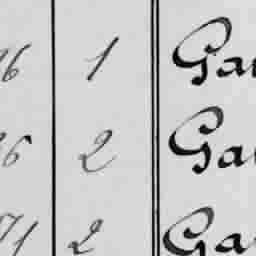 6 1 Ga
6 2 Ga
71 2 Ga